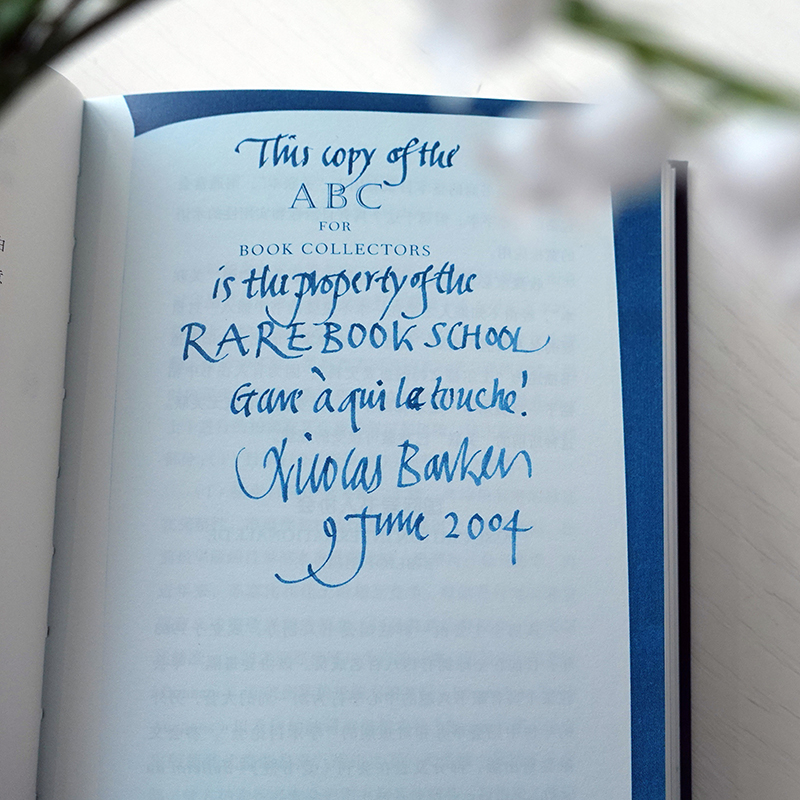 This copy of the
ABC
FOR
BOOK COLLECTORS
is the property of the
RARE BOOK SCHOOL
Gare à qui la touche!
Nicolas Barker
9 June 2004